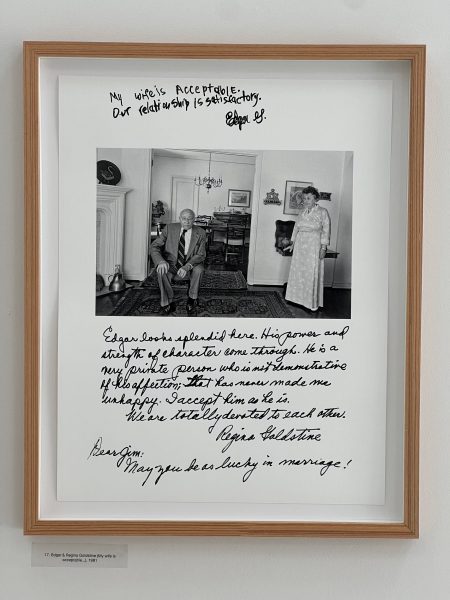 My wife is Acceptable.
Our relationship is satisfactory.
Edgar G.
Edgar looks splendid here. His power and
strength of character come through. He is a
very private person who is not demonstrative
of his affection; that has never made me
unhappy. I accept him as he is.
We are totally devoted to each other.
Regina Goldstine
Dear Jim:
May you be as lucky in marriage!
17. Edgar & Regina Goldstine (My wife is
acceptable...), 1981